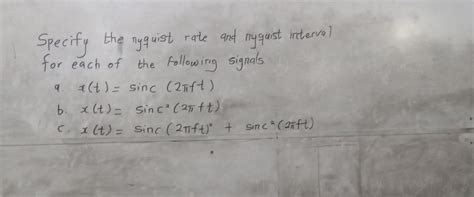 Specify the nyquist rate and nyquist interval
for each of the following signals
a. x(t) = sinc (2πft)
b. x(t) = sinc²(2πft)
c. x(t) = sinc (2πft)² + sinc²(2πft)